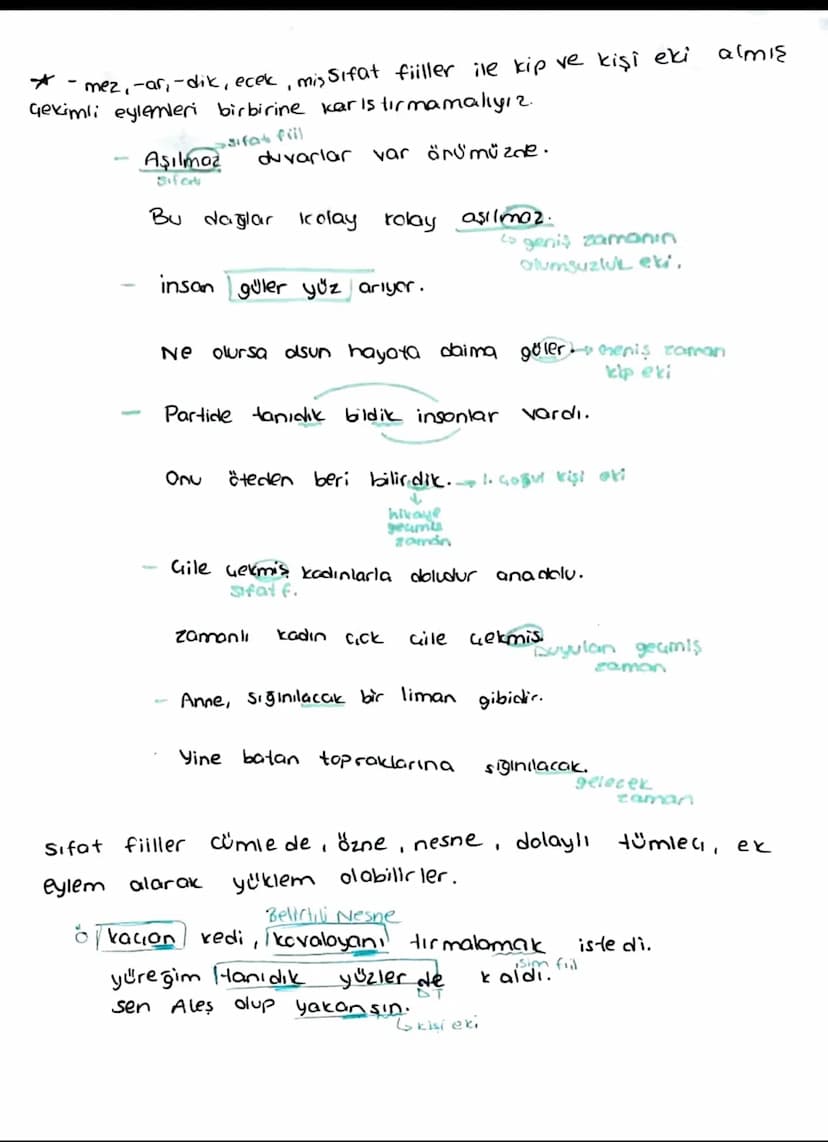 * -mez, -ar, -dik, ecek, miş sıfat fiiller ile kip ve kişi eki almış
çekimli eylemleri birbirine karıştırmamalıyız.
→ sıfat fiil
- Aşılmaz duvarlar var önümüzde.
sıfat
Bu dağlar kolay kolay aşılmaz.
↳ geniş zamanın
olumsuzluk eki.
- insan güler yüz arıyor.
Ne olursa olsun hayata daima güler → Geniş zaman
kip eki
- Partide tanıdık bildik insanlar vardı.
Onu öteden beri bilirdik. → 1. çoğul kişi eki
hikaye
geçmiş
zaman
- Çile çekmiş kadınlarla doludur anadolu.
sıfat f.
zamanlı kadın çok çile çekmiş.
Duyulan geçmiş
zaman
- Anne, sığınılacak bir liman gibidir.
Yine batan topraklarına sığınılacak.
gelecek
zaman
Sıfat fiiller cümlede, özne, nesne, dolaylı tümleç, ek
eylem alarak yüklem olabilirler.
Belirtili Nesne
Ö kaçan kedi, kovalayanı tırmalamak istedi.
isim fiil
yüreğim tanıdık yüzlerde kaldı.
DT
sen Ateş olup yakansın.
↳ kişi eki